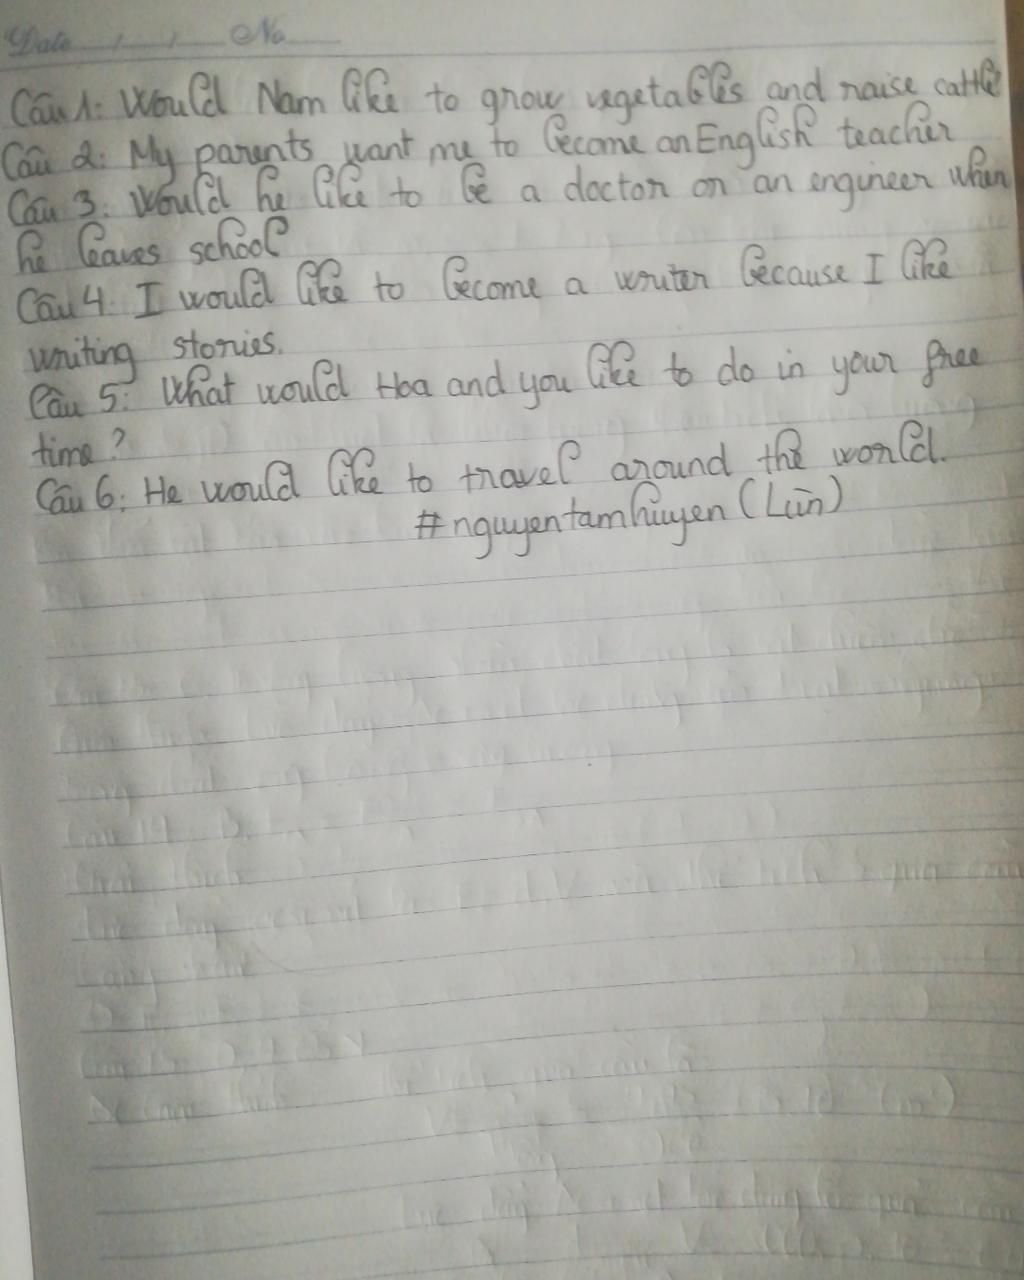 Date / / No
Câu 1: Would Nam like to grow vegetables and raise cattle
Câu 2: My parents want me to become an English teacher
Câu 3: Would he like to be a doctor or an engineer when
he leaves school
Câu 4: I would like to become a writer because I like
writing stories.
Câu 5: What would Hoa and you like to do in your free
time?
Câu 6: He would like to travel around the world.
#nguyentamhuyen (Lùn)